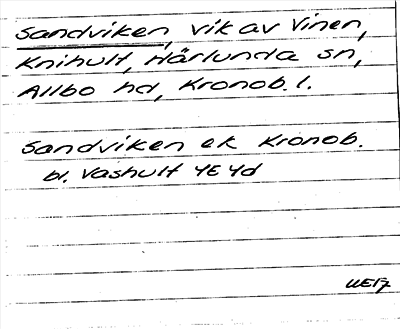 Sandviken, vik av Vinen,
Knihult, Härlunda sn,
Allbo hd, Kronob. l.
Sandviken ek Kronob.
bl. Vashult 4E 4d